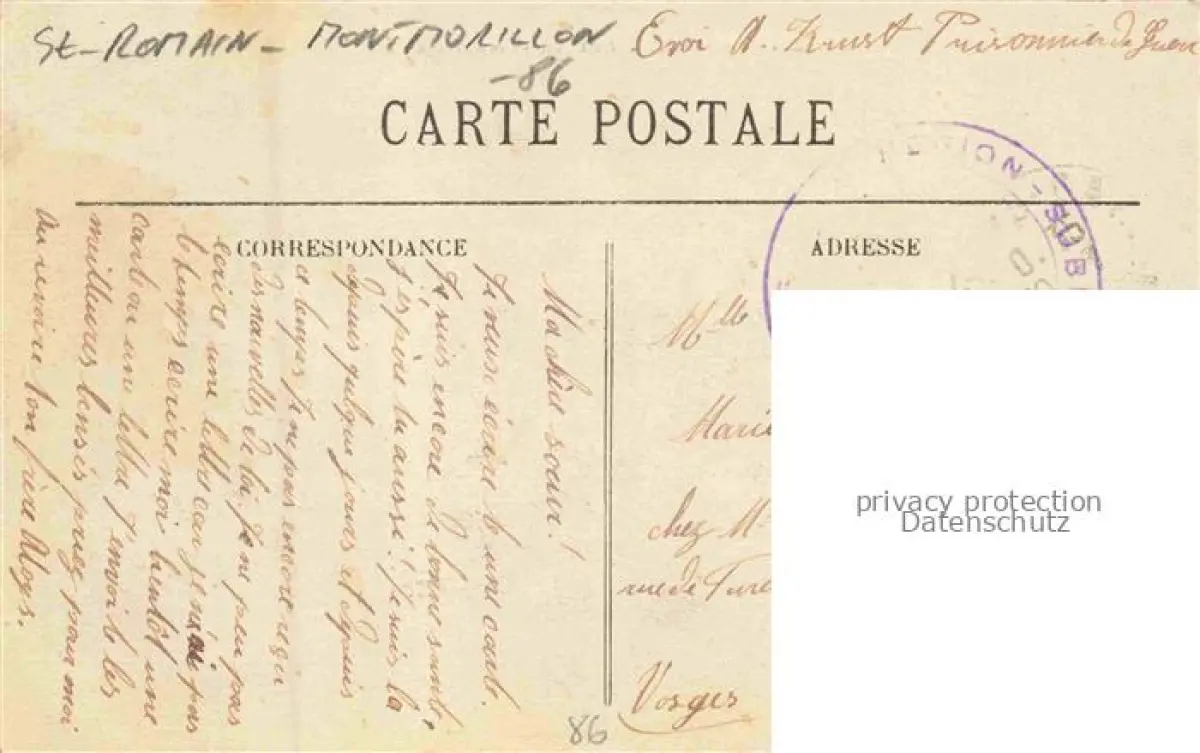 St-ROMAIN - MONTMORILLON
-86
Evoi A. Krust Prisonnier de Guerr
CARTE POSTALE
CORRESPONDANCE
Ma chère soeur!
Je veux écrire te une carte.
Je suis encore de bonne santé,
j'espère tu aussi! Je suis là
depuis quelque jours et depuis
ce temps je ne pas encore reçu
des nouvelles de toi. Je ne peu pas
écrire une lettre car je n'ai pas
le temps écrire moi bientôt une
carte ou une lettre. J'envoi te les
meilleures baisés priez pour moi
Au revoire ton frère Aloys.
ADRESSE
Mlle
Marie
chez M
rue de Ture
Vosges
86
privacy protection
Datenschutz